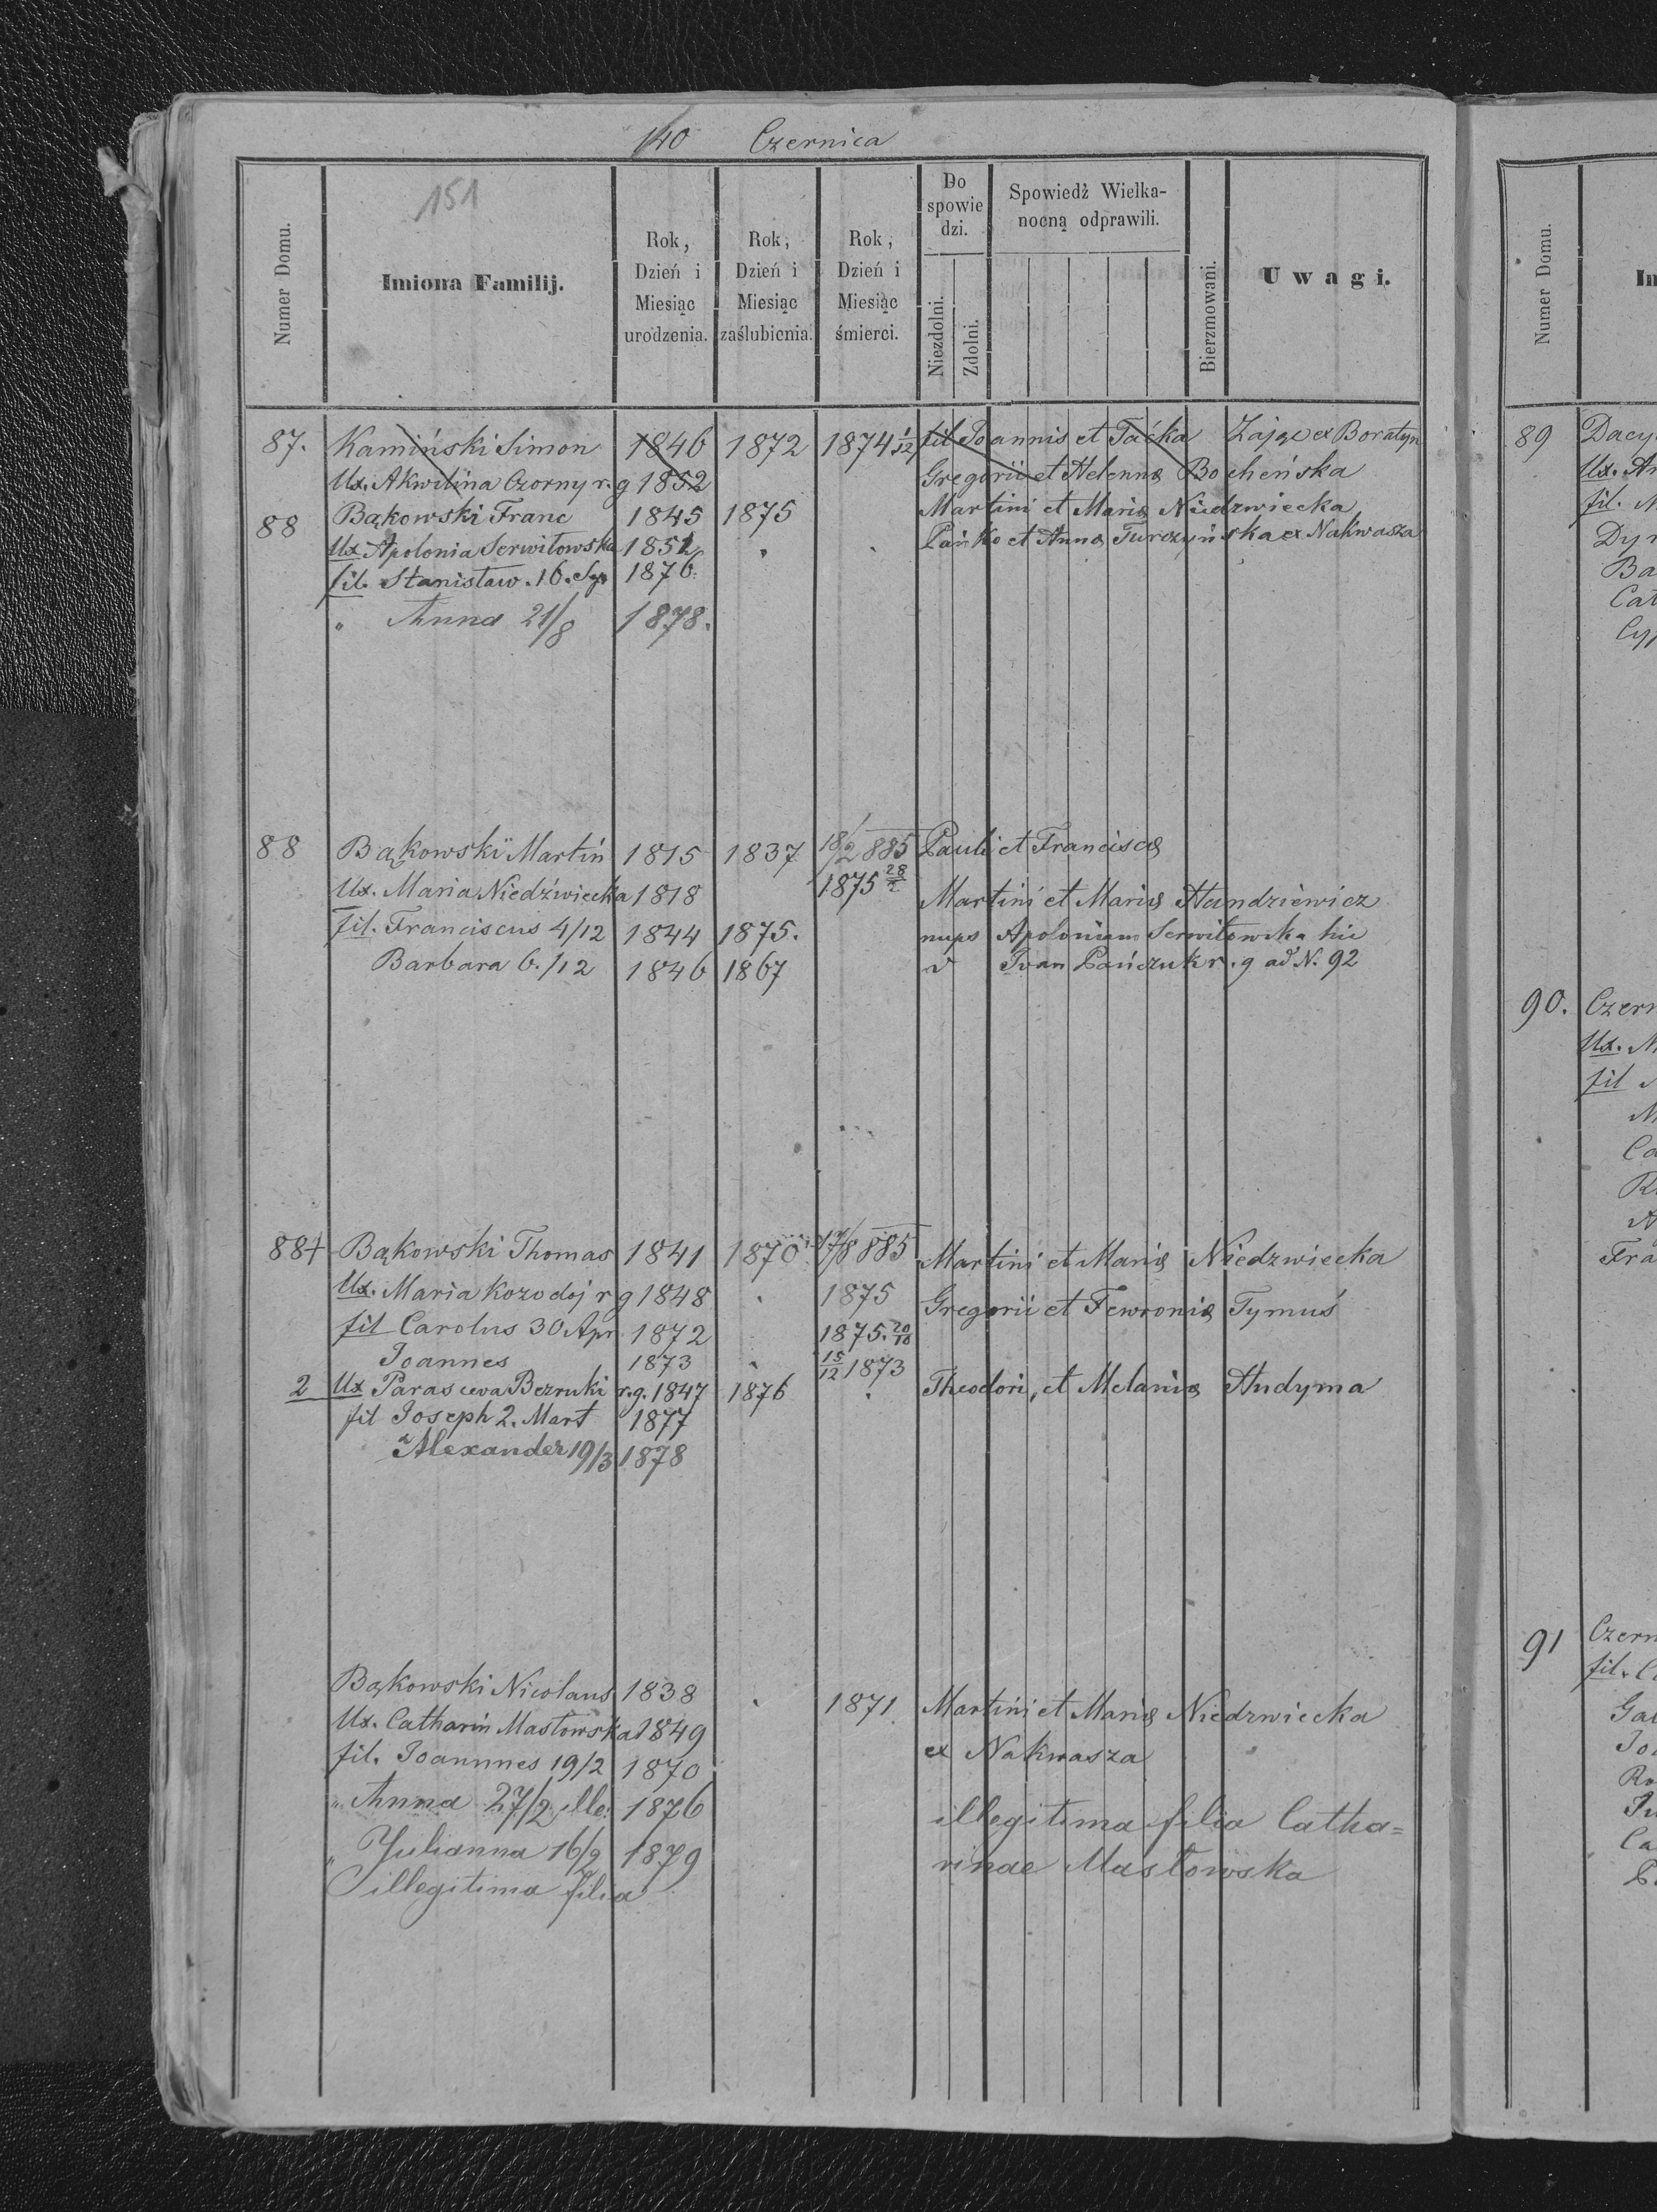 140 Czernica
151
Numer Domu.
Imiona Familij.
Rok, Dzień i Miesiąc urodzenia.
Rok, Dzień i Miesiąc zaślubienia.
Rok, Dzień i Miesiąc śmierci.
Do spowie dzi.
Niezdolni.
Zdolni.
Spowiedź Wielka-
nocną odprawili.
Bierzmowani.
Uwagi.
87. Kamiński Simon 1846 1872 1874 1/12 fil Joannis et Taćka Zając ex Boratyn
Ux. Akwilina Czorny r. g 1852 Gregorii et Helennæ Bocheńska
88 Bąkowski Franc 1845 1875 Martini et Mariæ Niedzwiecka
Ux Apolonia Serwitowska 1852 Pańko et Annæ Turczyńska ex Nakwasza
fil. Stanisław. 16. 1876.
" Anna 21/8 1878.
88 Bąkowski Martin 1815 1837 18/2 885 Pauli et Franciscæ
Ux. Maria Niedźwiecka 1818 1875 28/2 Martini et Mariæ Hundziewicz
fil. Franciscus 4/12 1844 1875. nups Apoloniam Serwitowska hic
Barbara 6./12 1846 1867 Ivan Pańczuk r. g ad N. 92
88+ Bąkowski Thomas 1841 1870 17/8 885 Martini et Mariæ Niedzwiecka
Ux. Maria Kozodoj r g 1848 1875 Gregorii et Fewroniæ Tymuś
fil Carolus 30 Apr 1872 1875. 20/10
Joannes 1873 15/12 1873
2 Ux Parascewa Bezruki r. g. 1847 1876 Theodori, et Melaniæ Hudyma
fil Joseph 2. Mart 1877
" Alexander 19/3 1878
Bąkowski Nicolaus 1838 1871 Martini et Mariæ Niedzwiecka
Ux. Catharin Masłowska 1849 ex Nakwasza
fil. Joannnes 19/2 1870
" Anna 27/2 ille. 1876 illegitima filia Catha=
" Julianna 16/2 1879 rinae Masłowska
illegitima filia
Numer Domu.
89
90. Czern
91 Czern